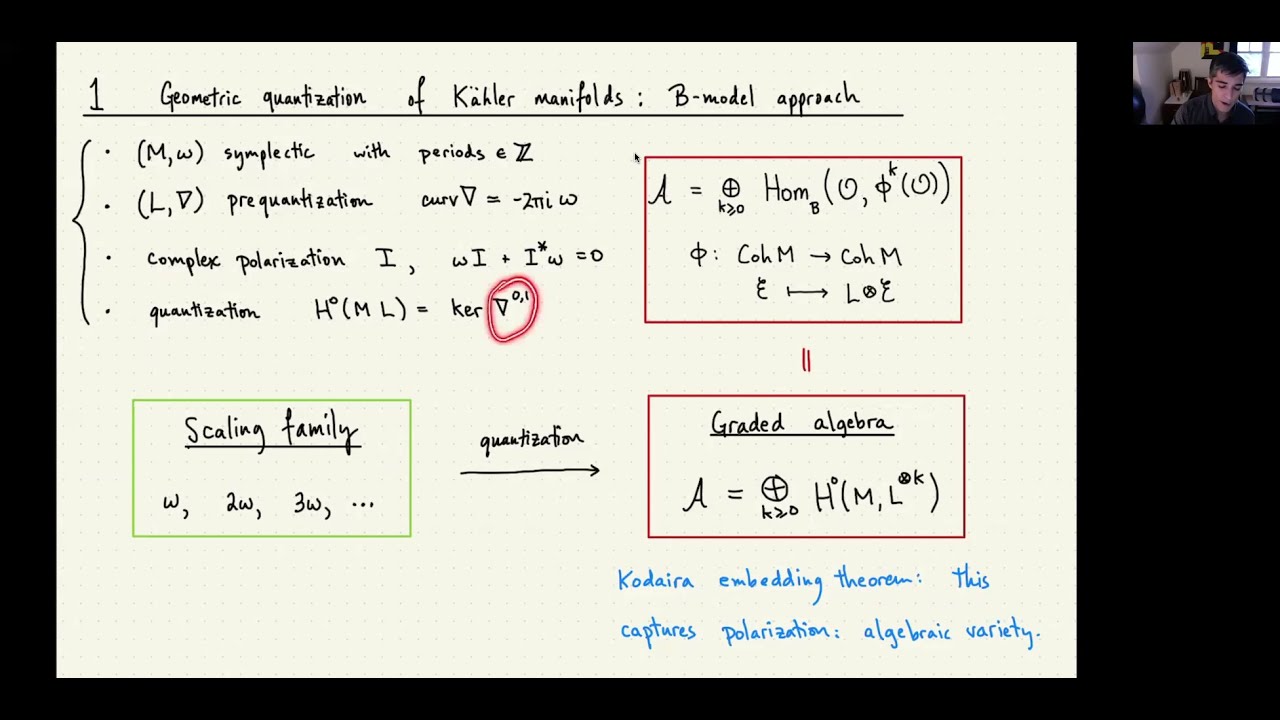 1 Geometric quantization of Kähler manifolds: B-model approach
· (M, ω) symplectic with periods ∈ ℤ
· (L, ∇) prequantization curv∇ = -2πi ω
· complex polarization I, ωI + I*ω = 0
· quantization H⁰(M L) = ker ∇^{0,1}
A = ⊕_{k≥0} Hom_B(O, Φ^k(O))
Φ: Coh M → Coh M
ℰ ⟼ L⊗ℰ
||
Scaling family
ω, 2ω, 3ω, ...
quantization
Graded algebra
A = ⊕_{k≥0} H⁰(M, L^{⊗k})
Kodaira embedding theorem: this
captures polarization: algebraic variety.